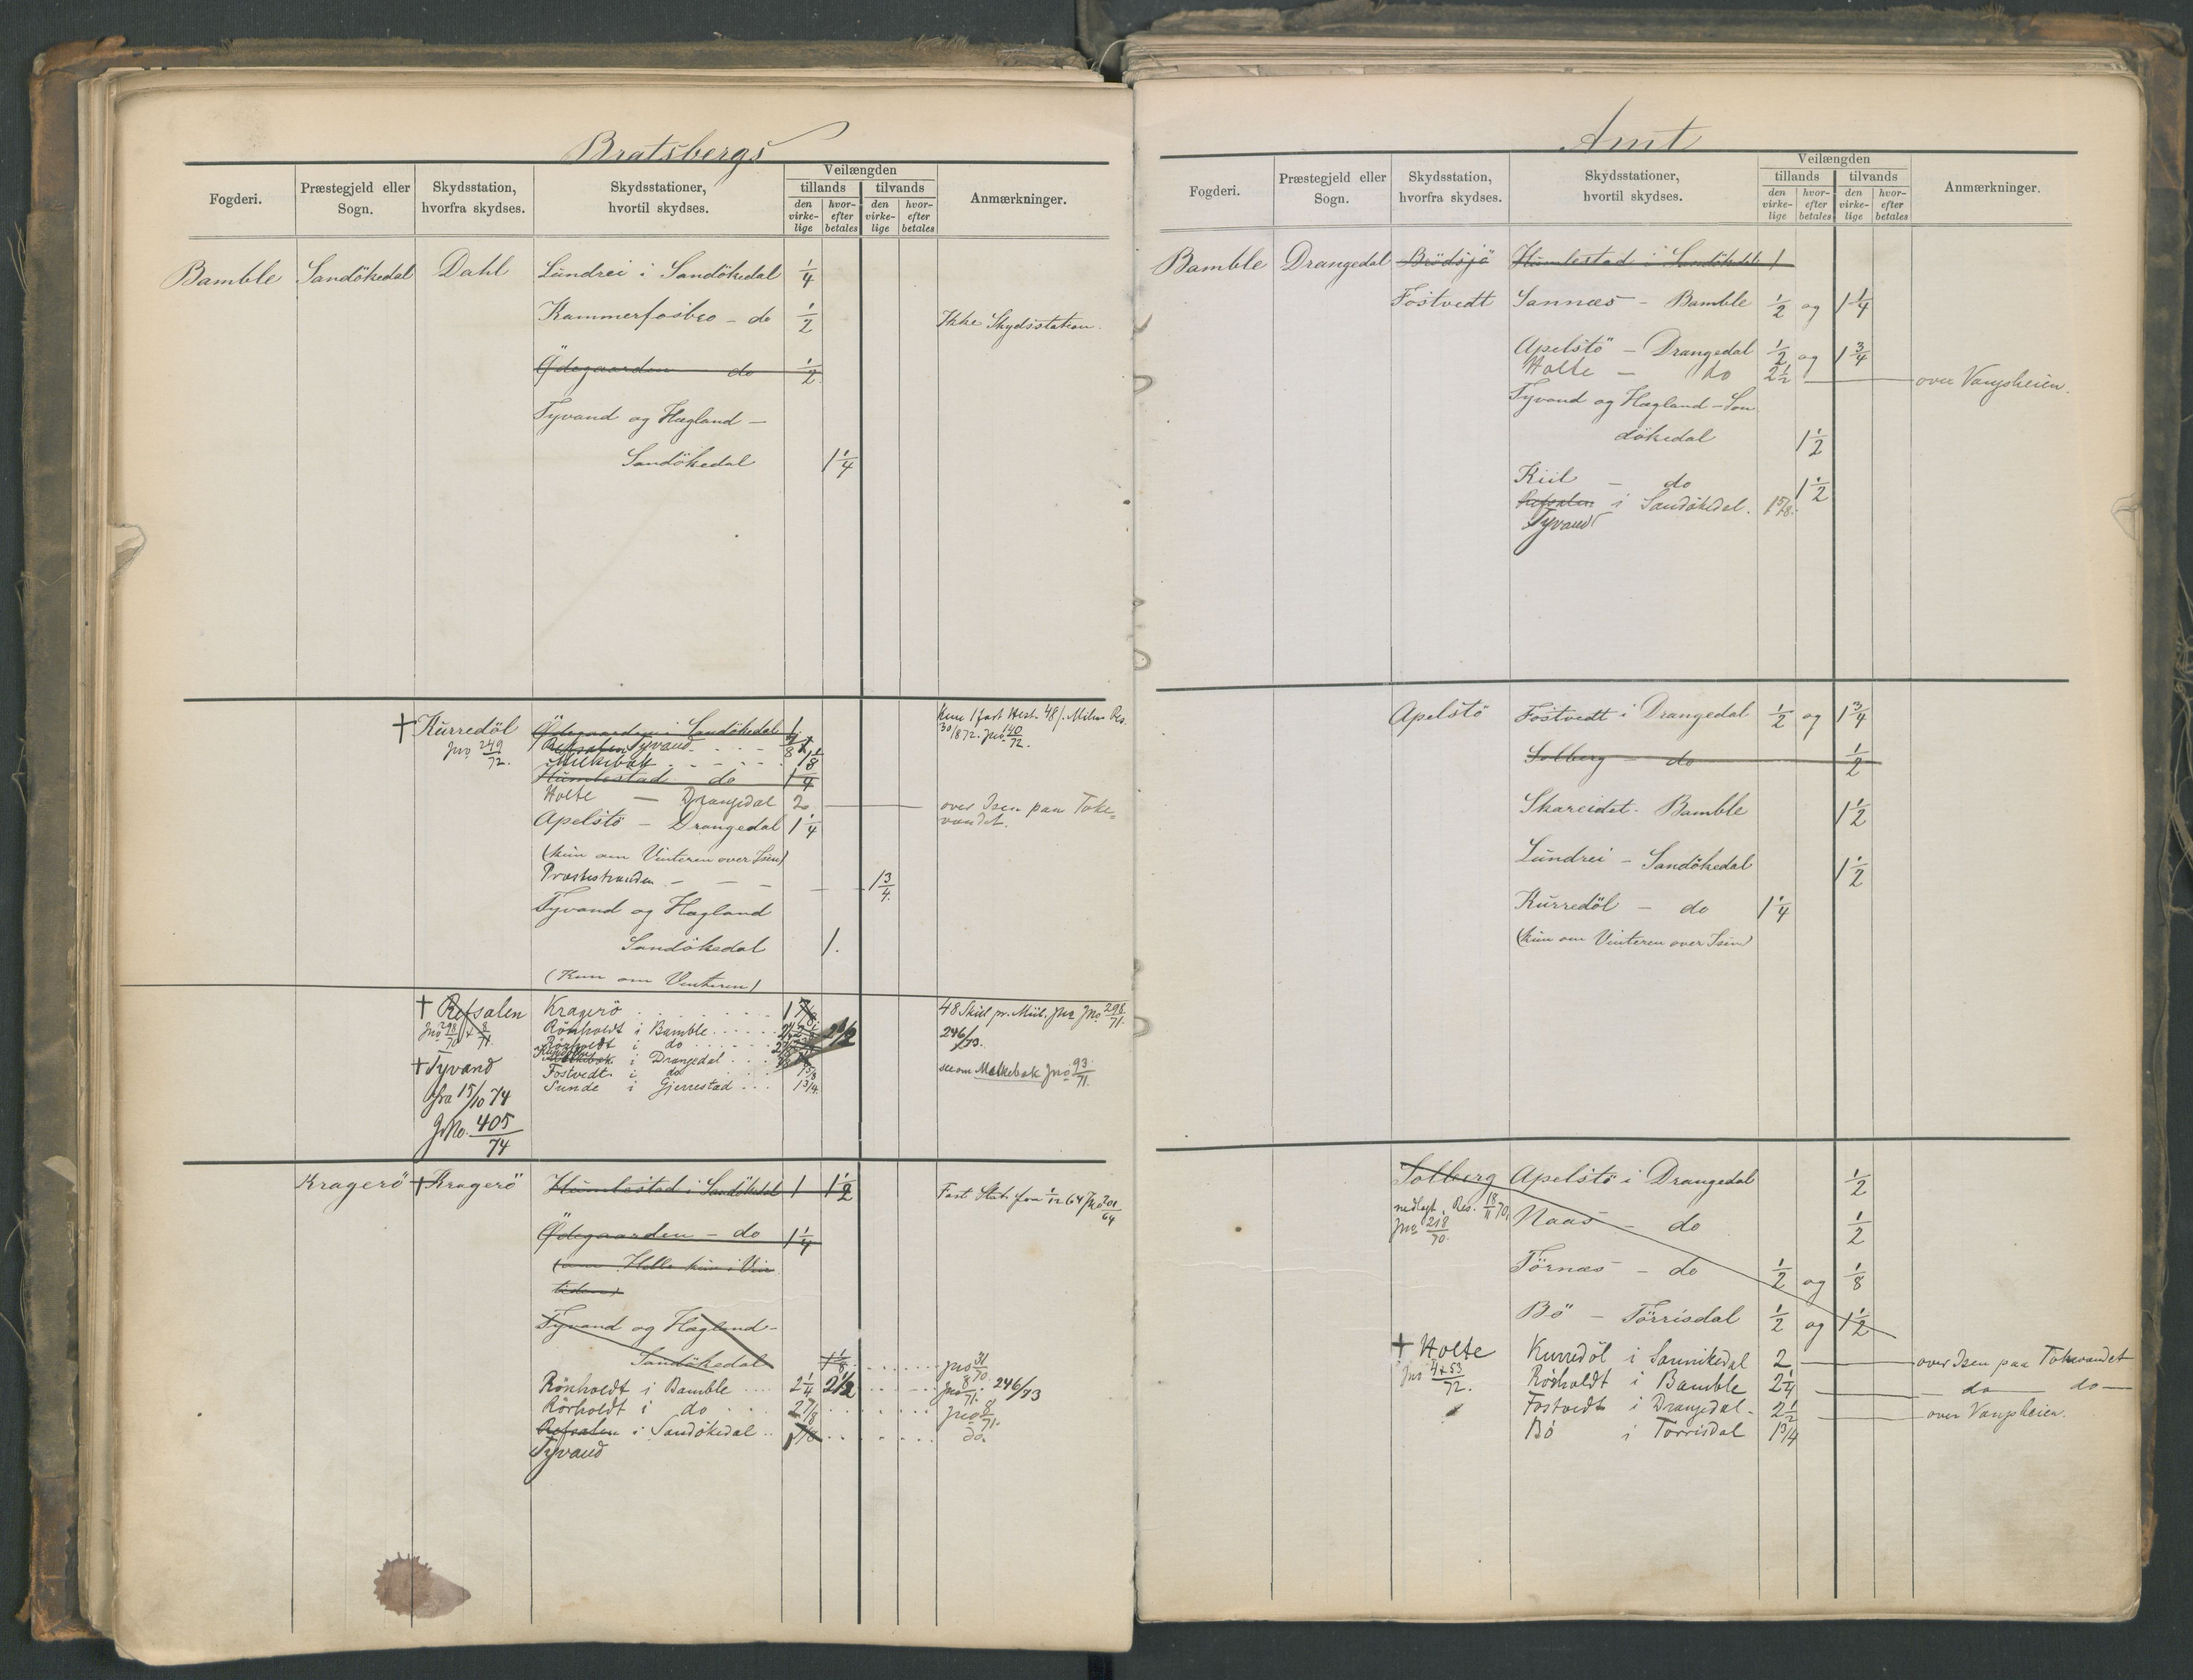 Bratsbergs
Fogderi.
Præstegjeld eller Sogn.
Skydsstation, hvorfra skydses.
Skydsstationer, hvortil skydses.
Veilængden
tillands
tilvands
den virke-lige
hvor-efter betales
den virke-lige
hvor-efter betales
Anmærkninger.
Bamble Sandökedal Dahl Lundrei i Sandökedal 1/4
Kammerfosbro - do 1/2 Ikke Skydsstation.
Ödegaarden do 1/2
Tyvand og Hægland -
Sandökedal 1 1/4
† Kurredöl Ödegaarden i Sandökedal
Jno 249/72. Refsalen Tyvand
Mælkebak 1 1/8
Humlestad do 1 1/4
Holte — Drangedal 2 over Isen paa Toke-
vandet.
Apelstö - Drangedal 1 1/4
(kun om Vinteren over Isen)
Præstestranden - - - 1 3/4
Tyvand og Hægland
Sandökedal 1.
(Kun om Vinteren)
Kun 1 fast Hest. 48 /. Milen Res.
30/8 72. Jno 140/72.
† Refsalen Kragerö 1 7/8 48 Skill pr. Miil. Jno 298/71.
Jno 298/70 + 8/71. Rönholdt i Bamble 2 1/2 246/73.
Rörholdt i do
† Tyvand Mælkebak i Drangedal see om Mælkebak Jno 93/71.
Fostvedt i do 1 5/8
fra 15/10 74 Sunde i Gjerrestad 1 3/4
JNo. 405/74
Kragerö † Kragerö Humlestad i Sandökedal 1 1 1/2 Fast Stat. fra 1/12 64 Jno 201/64
Ödegaarden - do 1 1/4
(over Helle kun i Vin
tiden)
Tyvand og Hægland -
Sandökedal 1 1/8 Jno 31/70.
Rönholdt i Bamble 2 1/4 2 1/2 Jno 8/71. 246/73
Rörholdt i do 2 7/8 Jno 8/71.
Refsalen i Sandökedal 1 7/8 do.
Tyvand
Amt
Fogderi.
Præstegjeld eller Sogn.
Skydsstation, hvorfra skydses.
Skydsstationer, hvortil skydses.
Veilængden
tillands
tilvands
den virke-lige
hvor-efter betales
den virke-lige
hvor-efter betales
Anmærkninger.
Bamble Drangedal Brödsjö Humlestad i Sandökedal 1
Fostvedt Sannæs - Bamble 1/2 og 1 1/4
Apelstö - Drangedal 1/2 og 1 3/4
Holte — do 2 1/2 over Vangsheien.
Tyvand og Hægland - San
dökedal 1 1/2
Kiil - do 1 1/2
Refsalen i Sandökedal. 1 5/8.
Tyvand
Apelstö Fostvedt i Drangedal 1/2 og 1 3/4
Solberg - do 1/2
Skareidet - Bamble 1 1/2
Lundrei - Sandökedal 1 1/2
Kurredöl - do 1 1/4
(kun om Vinteren over Isen)
Solberg Apelstö i Drangedal 1/2
nedlagt. Res. 18/11 70,
Jno 218/70. Naas - do 1/2
Törnæs - do 1/2 og 1/8
Bö - Törrisdal 1/2 og 1 1/2
† Holte Kurredöl i Sannikedal 2 over Isen paa Tokevandet
Jno 4+53/72. Rörholdt i Bamble 2 1/4 do do
Fostvedt i Drangedal - 2 1/2 over Vangsheien.
Bö i Torrisdal 1 3/4